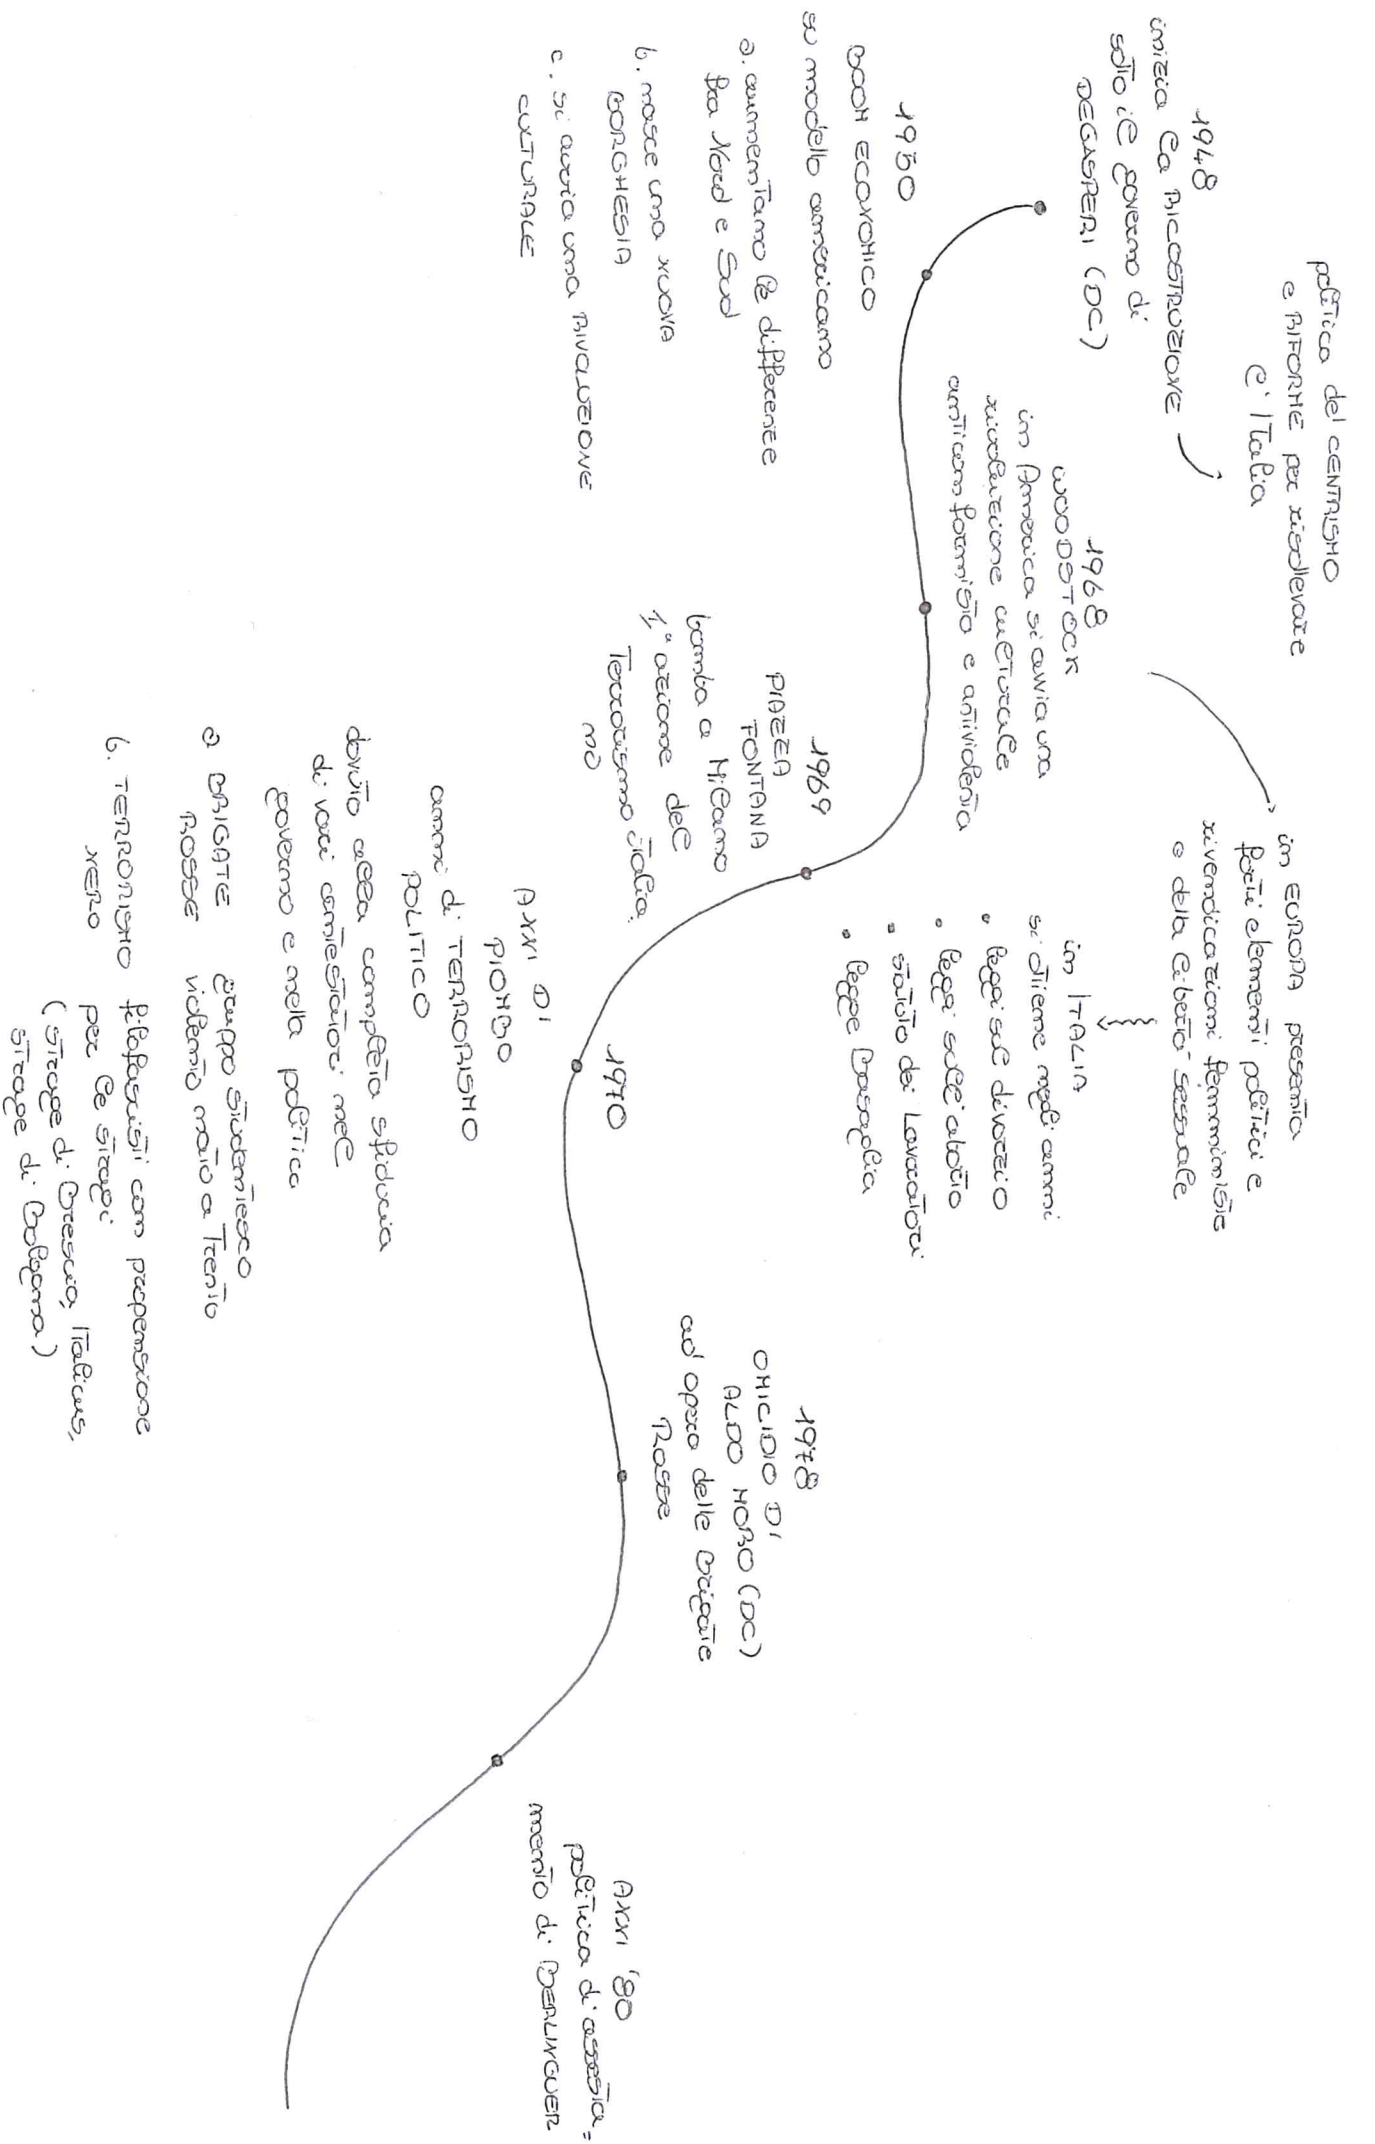 1948
inizia la RICOSTRUZIONE
sotto il governo di
DEGASPERI (DC)
politica del CENTRISMO
e RIFORME per risollevare
l'Italia
1950
BOOM ECONOMICO
su modello americano
a. aumentano le differenze
fra Nord e Sud
b. nasce una NUOVA
BORGHESIA
c. si avvia una RIVOLUZIONE
CULTURALE
1968
WOODSTOCK
in America si avvia una
rivoluzione culturale
anticonformista e antiviolenta
in EUROPA presenta
forti elementi politici e
rivendicazioni femministe
e della libertà sessuale
in ITALIA
si ottiene negli anni
• leggi sul divorzio
• leggi sull'aborto
• statuto dei Lavoratori
• legge Basaglia
1969
PIAZZA
FONTANA
bomba a Milano
1ª azione del
Terrorismo italia=
no
1970
ANNI DI
PIOMBO
anni di TERRORISMO
POLITICO
dovuto alla completa sfiducia
di vari contestatori nel
governo e nella politica
a BRIGATE gruppo studentesco
ROSSE violento nato a Trento
b. TERRORISMO filofascisti con propensione
NERO per le stragi
(strage di Brescia, Italicus,
strage di Bologna)
1978
OMICIDIO DI
ALDO MORO (DC)
ad opera delle Brigate
Rosse
ANNI '80
politica di assesta=
mento di BERLINGUER